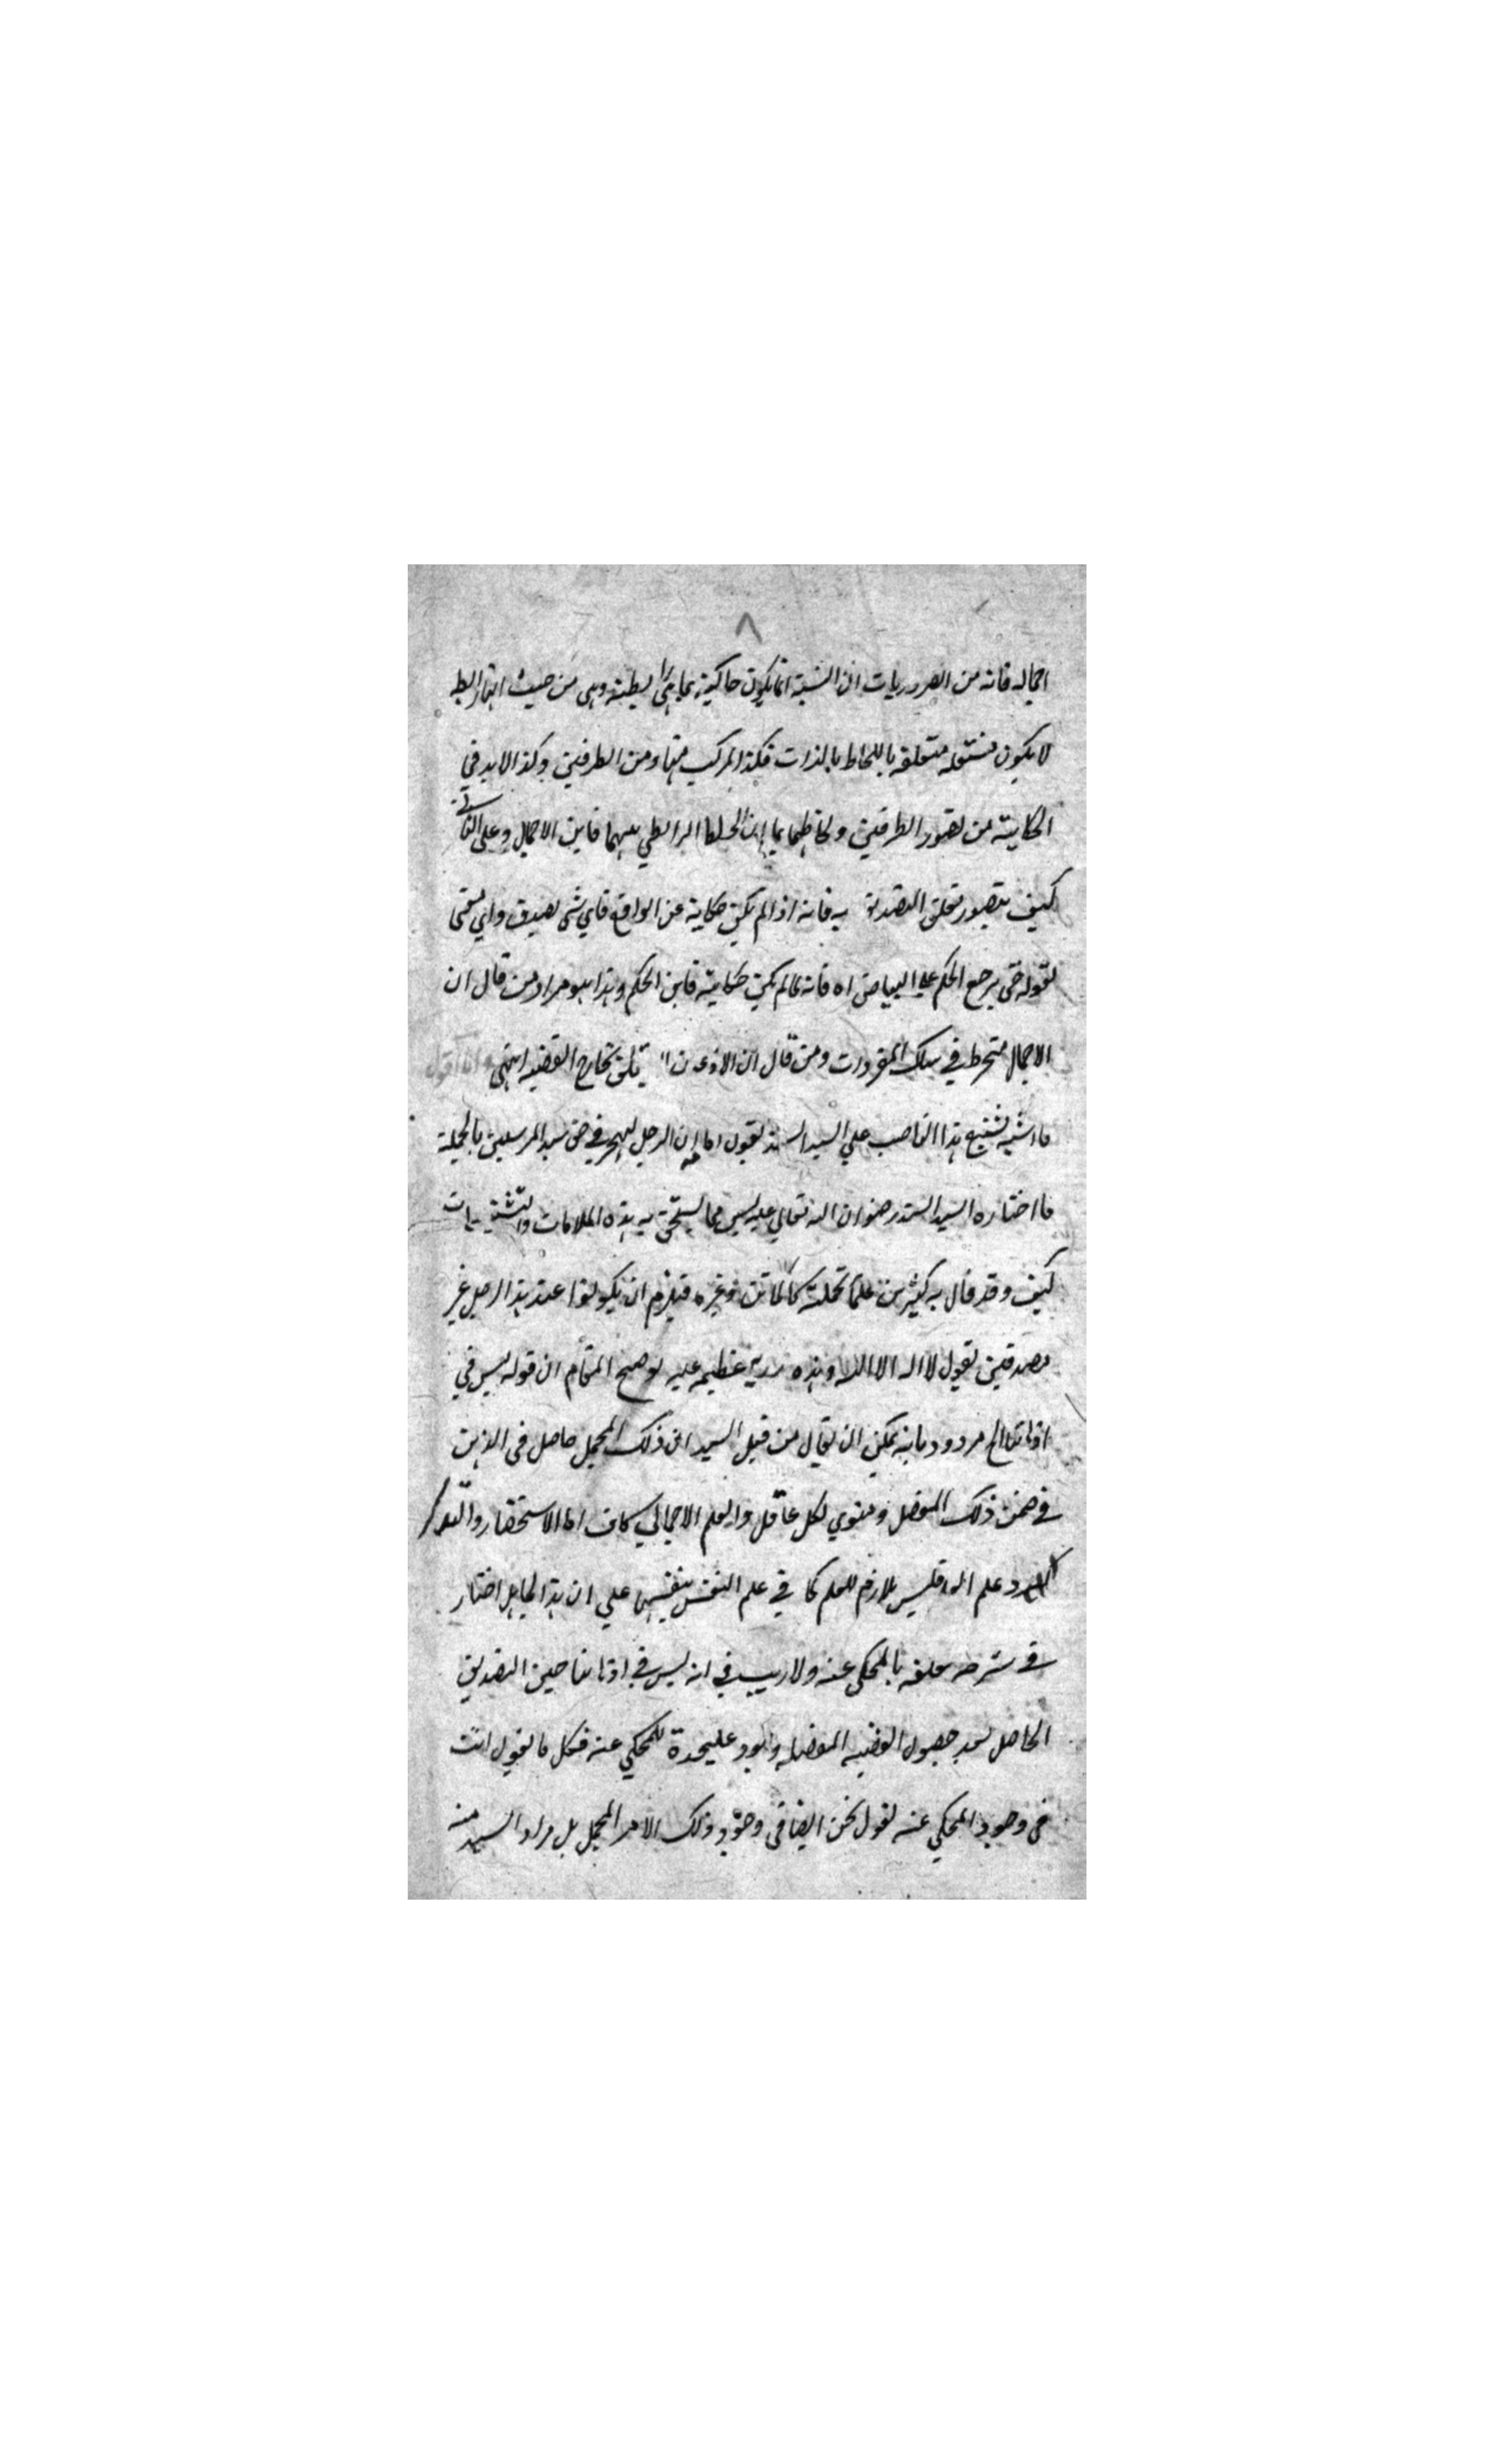 ٨
اجماله فانه من الضروريات ان النسبة انما يكون حاكية بما هى رابطية وهى من حيث انها رابطة
لا يكون مستقلة متعلقة باللحاظ بالذات فكذا المركب منها ومن الطرفين وكذا لا بد في
الحكاية من تصور الطرفين ولحاظهما بما ان الخلط الرابطي بينهما فاين الاجمال وعلى الثاني
كيف يتصور تعلق التصديق به فانه اذا لم يكن حكاية عن الواقع فاي شى يصدق واي معنى
لقوله حتى يرجع الحكم على البياض اه فانه ما لم يكن حكاية فاين الحكم وهذا هو مراد من قال ان
الاجمال منخرط في سلك المفردات ومن قال ان الاذعان يتعلق بخارج القضية انتهى وانا اقول
ما اشبه تشنيع هذا الناصب علي السيد السند لقول ان الرجل ليهجر في حق سيد المرسلين بالجملة
ما اختاره السيد السند رضوان الله تعالي عليه ليس مما يستحق به هذه الملامات والتشنيعات
كيف وقد قال به كثير من علما نحلته كالماتن وغيره فيلزم ان يكونوا عند هذا الرجل غير
مصدقين بقول لا اله الا الله وهذه عظيمه عليه توضيح المقام ان قوله ليس في
اذهاننا الخ مردود بانه يمكن ان يقال من قبل السيد ان ذلك المجمل حاصل في الذهن
في ضمن ذلك المفصل ومنوي لكل عاقل والعلم الاجمالي كاف اما الاستحضار
علم العلم فليس بلازم للعلم كما في علم النفس بنفسها علي ان هذا الجاهل اختار
في شرحه تعلقه بالمحكى عنه ولا ريب في انه ليس في اذهاننا حين التصديق
الحاصل بعد حصول القضية المفصله وجود عليحدة للمحكي عنه فكل ما تقول انت
في وجود المحكي عنه نقول نحن ايضا في وجود ذلك الامر المجمل بل مراد السيد منه